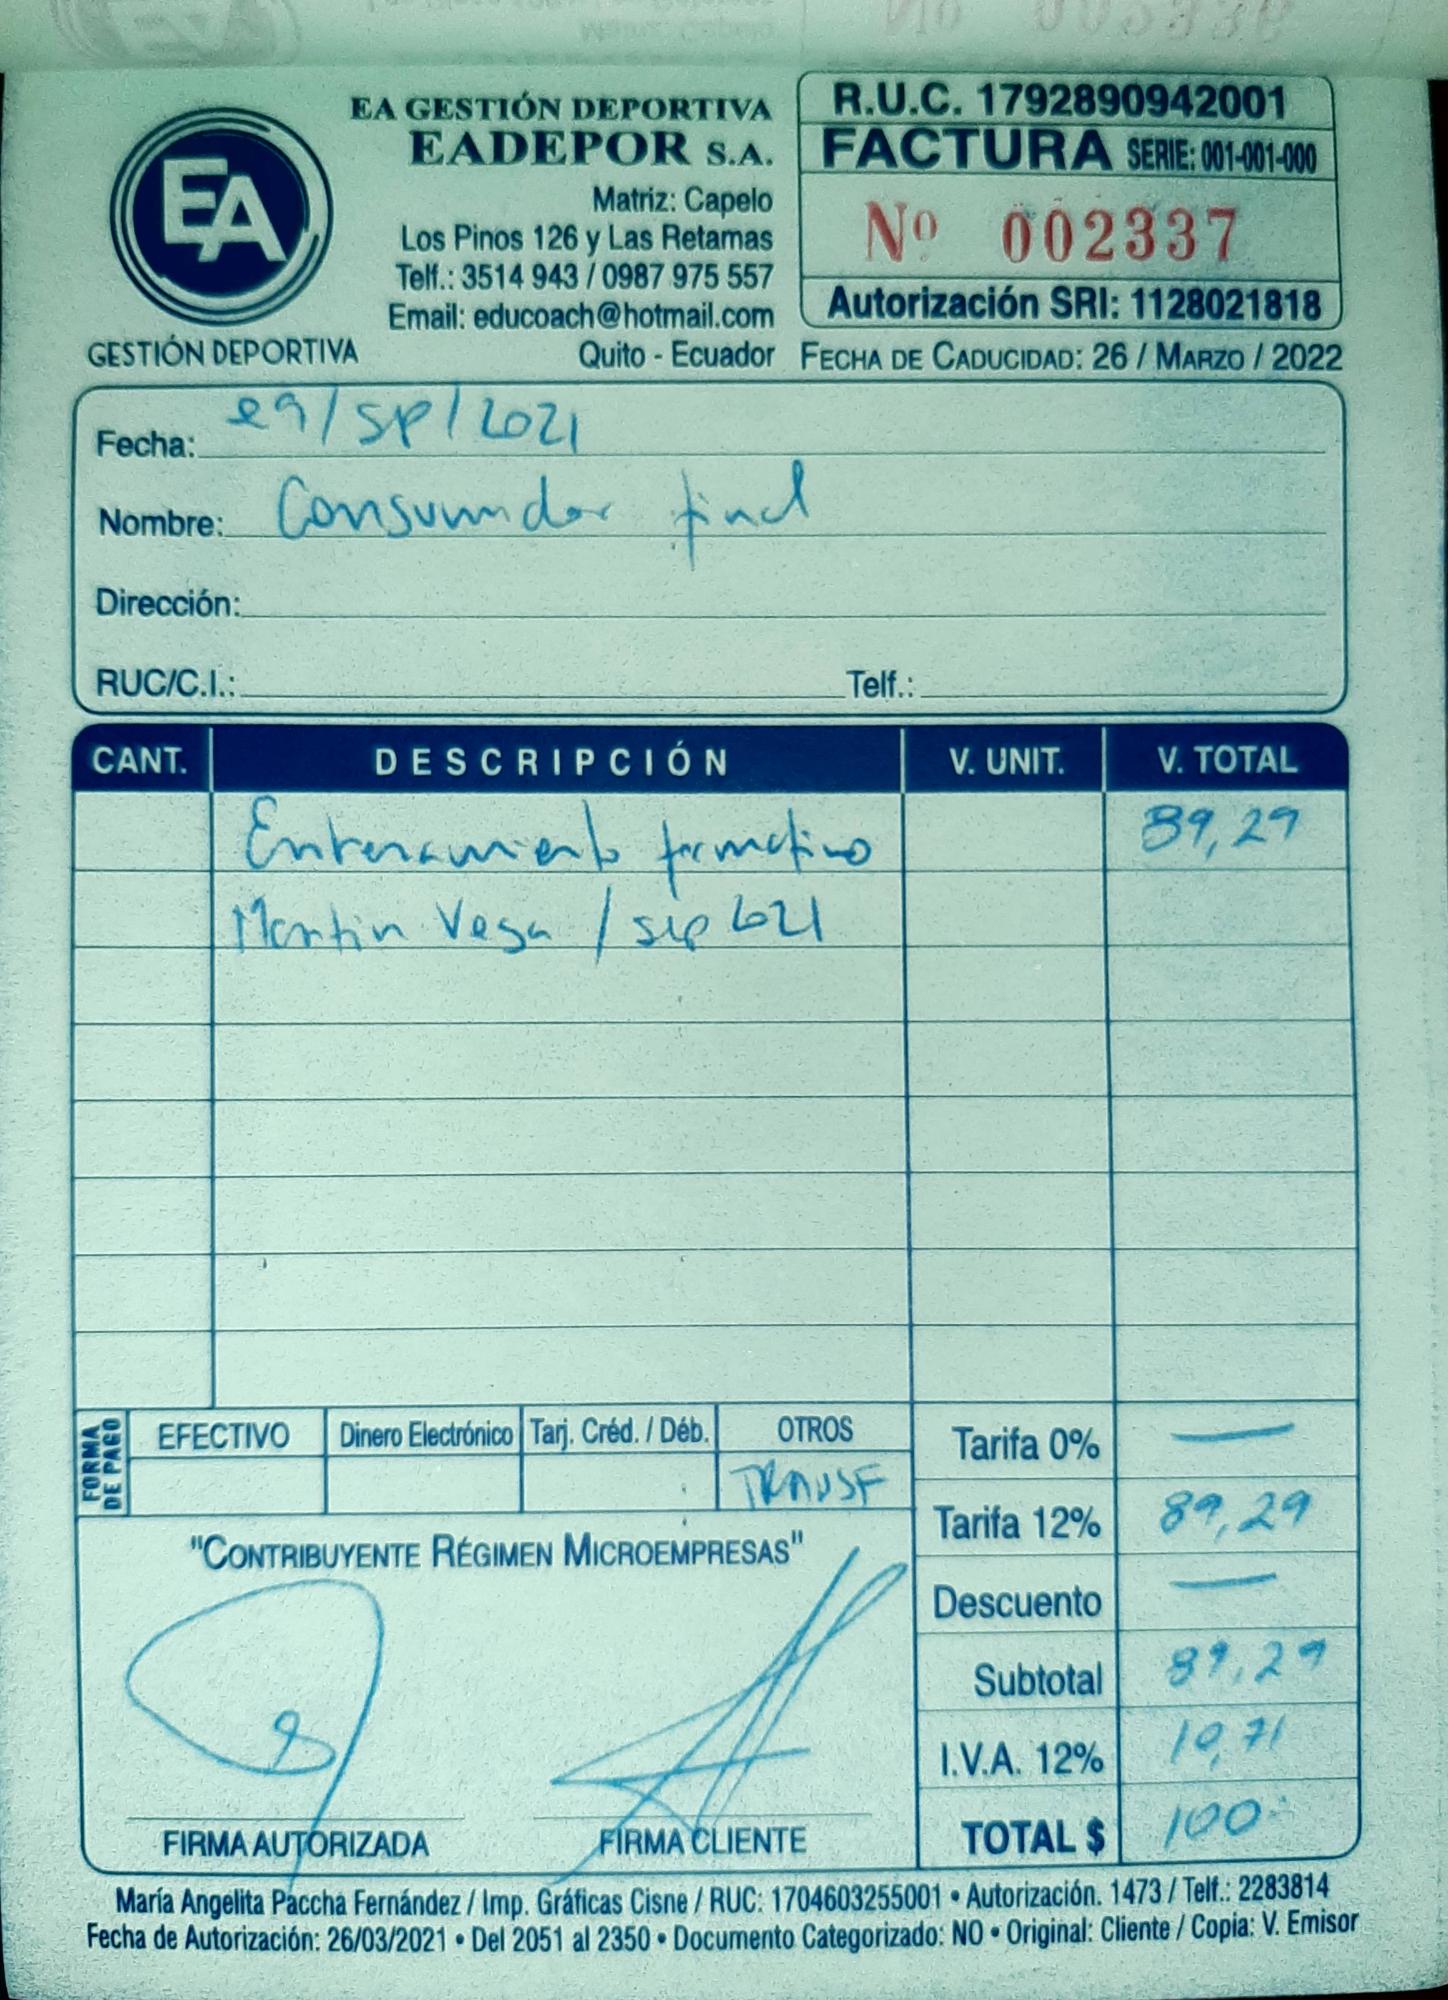 EA GESTIÓN DEPORTIVA
EADEPOR S.A.
Matriz: Capelo
Los Pinos 126 y Las Retamas
Telf.: 3514 943 / 0987 975 557
Email: educoach@hotmail.com
Quito - Ecuador
EA
GESTIÓN DEPORTIVA
R.U.C. 1792890942001
FACTURA SERIE: 001-001-000
Nº 002337
Autorización SRI: 1128021818
FECHA DE CADUCIDAD: 26 / MARZO / 2022
Fecha: 29/SP/2021
Nombre: Consumidor final
Dirección:
RUC/C.I.: Telf.:
CANT. DESCRIPCIÓN V. UNIT. V. TOTAL
Entrenamiento formativo 89,29
Martin Vega / sep 2021
FORMA DE PAGO
EFECTIVO Dinero Electrónico Tarj. Créd. / Déb. OTROS
TRANSF
Tarifa 0% —
Tarifa 12% 89,29
Descuento —
Subtotal 89,29
I.V.A. 12% 10,71
TOTAL $ 100
"CONTRIBUYENTE RÉGIMEN MICROEMPRESAS"
FIRMA AUTORIZADA FIRMA CLIENTE
María Angelita Paccha Fernández / Imp. Gráficas Cisne / RUC: 1704603255001 • Autorización. 1473 / Telf.: 2283814
Fecha de Autorización: 26/03/2021 • Del 2051 al 2350 • Documento Categorizado: NO • Original: Cliente / Copia: V. Emisor